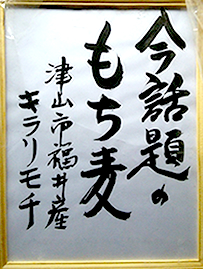 今話題の
もち麦
津山市福井産
キラリモチ